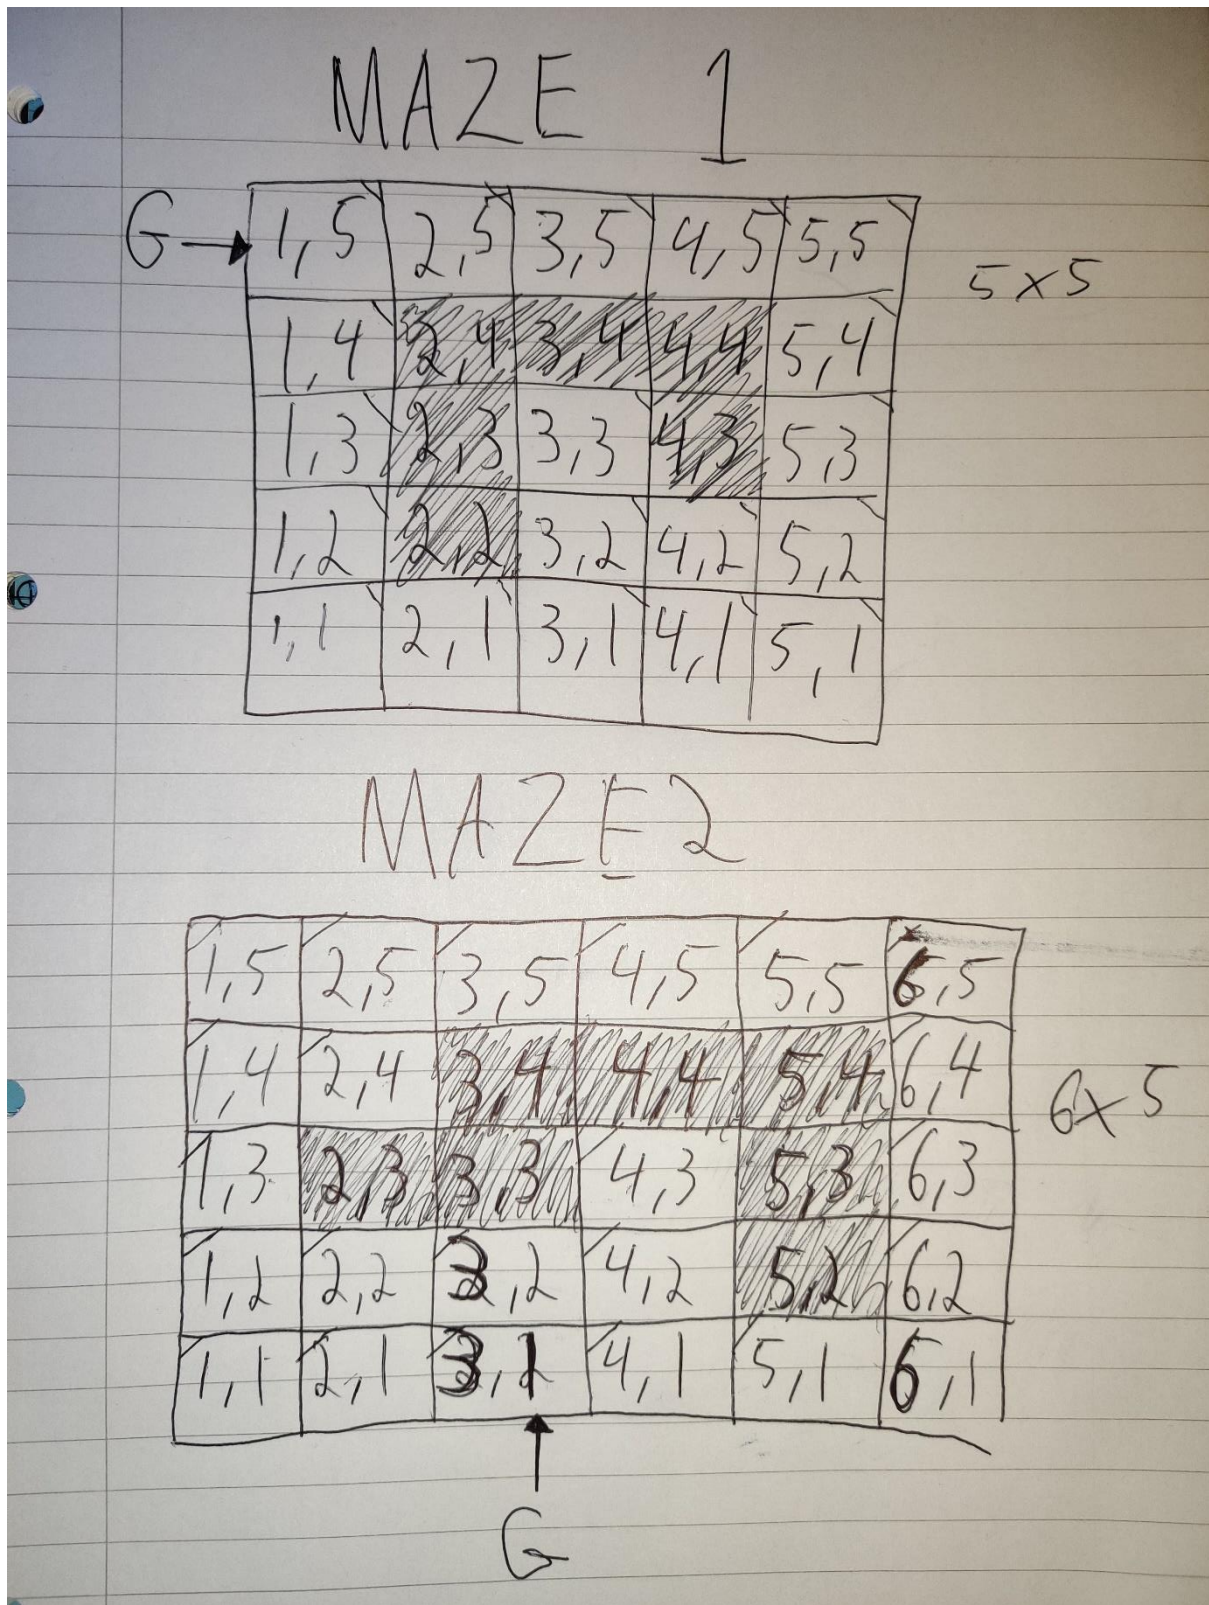 MAZE 1
G 1,5 2,5 3,5 4,5 5,5
5x5
1,4 2,4 3,4 4,4 5,4
1,3 2,3 3,3 4,3 5,3
1,2 2,2 3,2 4,2 5,2
1,1 2,1 3,1 4,1 5,1
MAZE 2
1,5 2,5 3,5 4,5 5,5 6,5
1,4 2,4 3,4 4,4 5,4 6,4
6x5
1,3 2,3 3,3 4,3 5,3 6,3
1,2 2,2 3,2 4,2 5,2 6,2
1,1 2,1 3,1 4,1 5,1 6,1
G